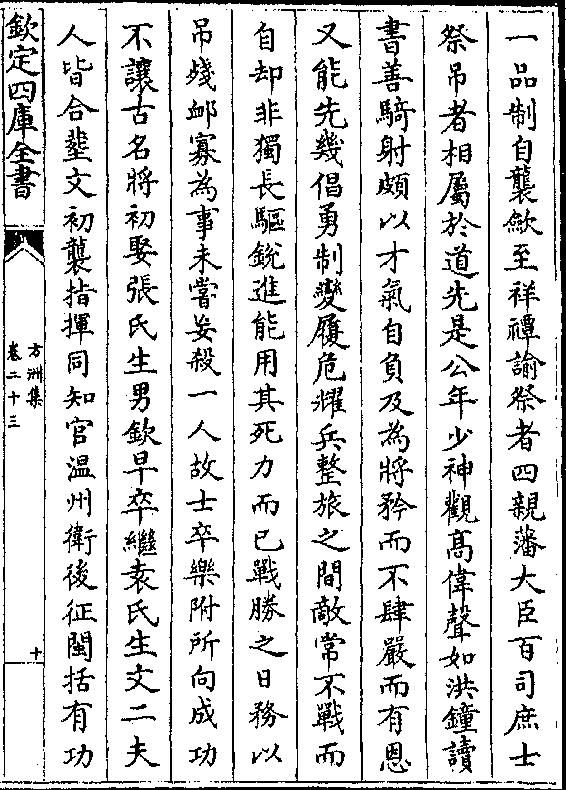 一品制自襲歛至祥禫諭祭者四親藩大臣百司庶士
祭吊者相屬於道先是公年少神觀髙偉聲如洪鐘讀
書善騎射頗以才氣自負及為將矜而不肆嚴而有恩
又能先幾倡勇制變履危耀兵整旅之間敵常不戰而
自却非獨長驅銳進能用其死力而已戰勝之日務以
吊殘䘏寡為事未嘗妄殺一人故士卒樂附所向成功
不讓古名將初娶張氏生男欽早卒繼袁氏生文二夫
人皆合塟文初襲指揮同知官温州衛後征閩括有功
欽定四庫全書
方洲集
卷二十三
十